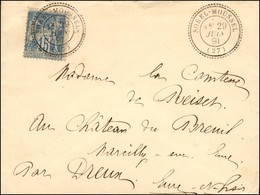 SOREL-MOUSSEL
29
JUIN
91
(27)
15
Madame la Comtesse
de Reiset
au Château du Breuil
Marcilly-sur-Eure
Par Dreux Eure-et-Loir